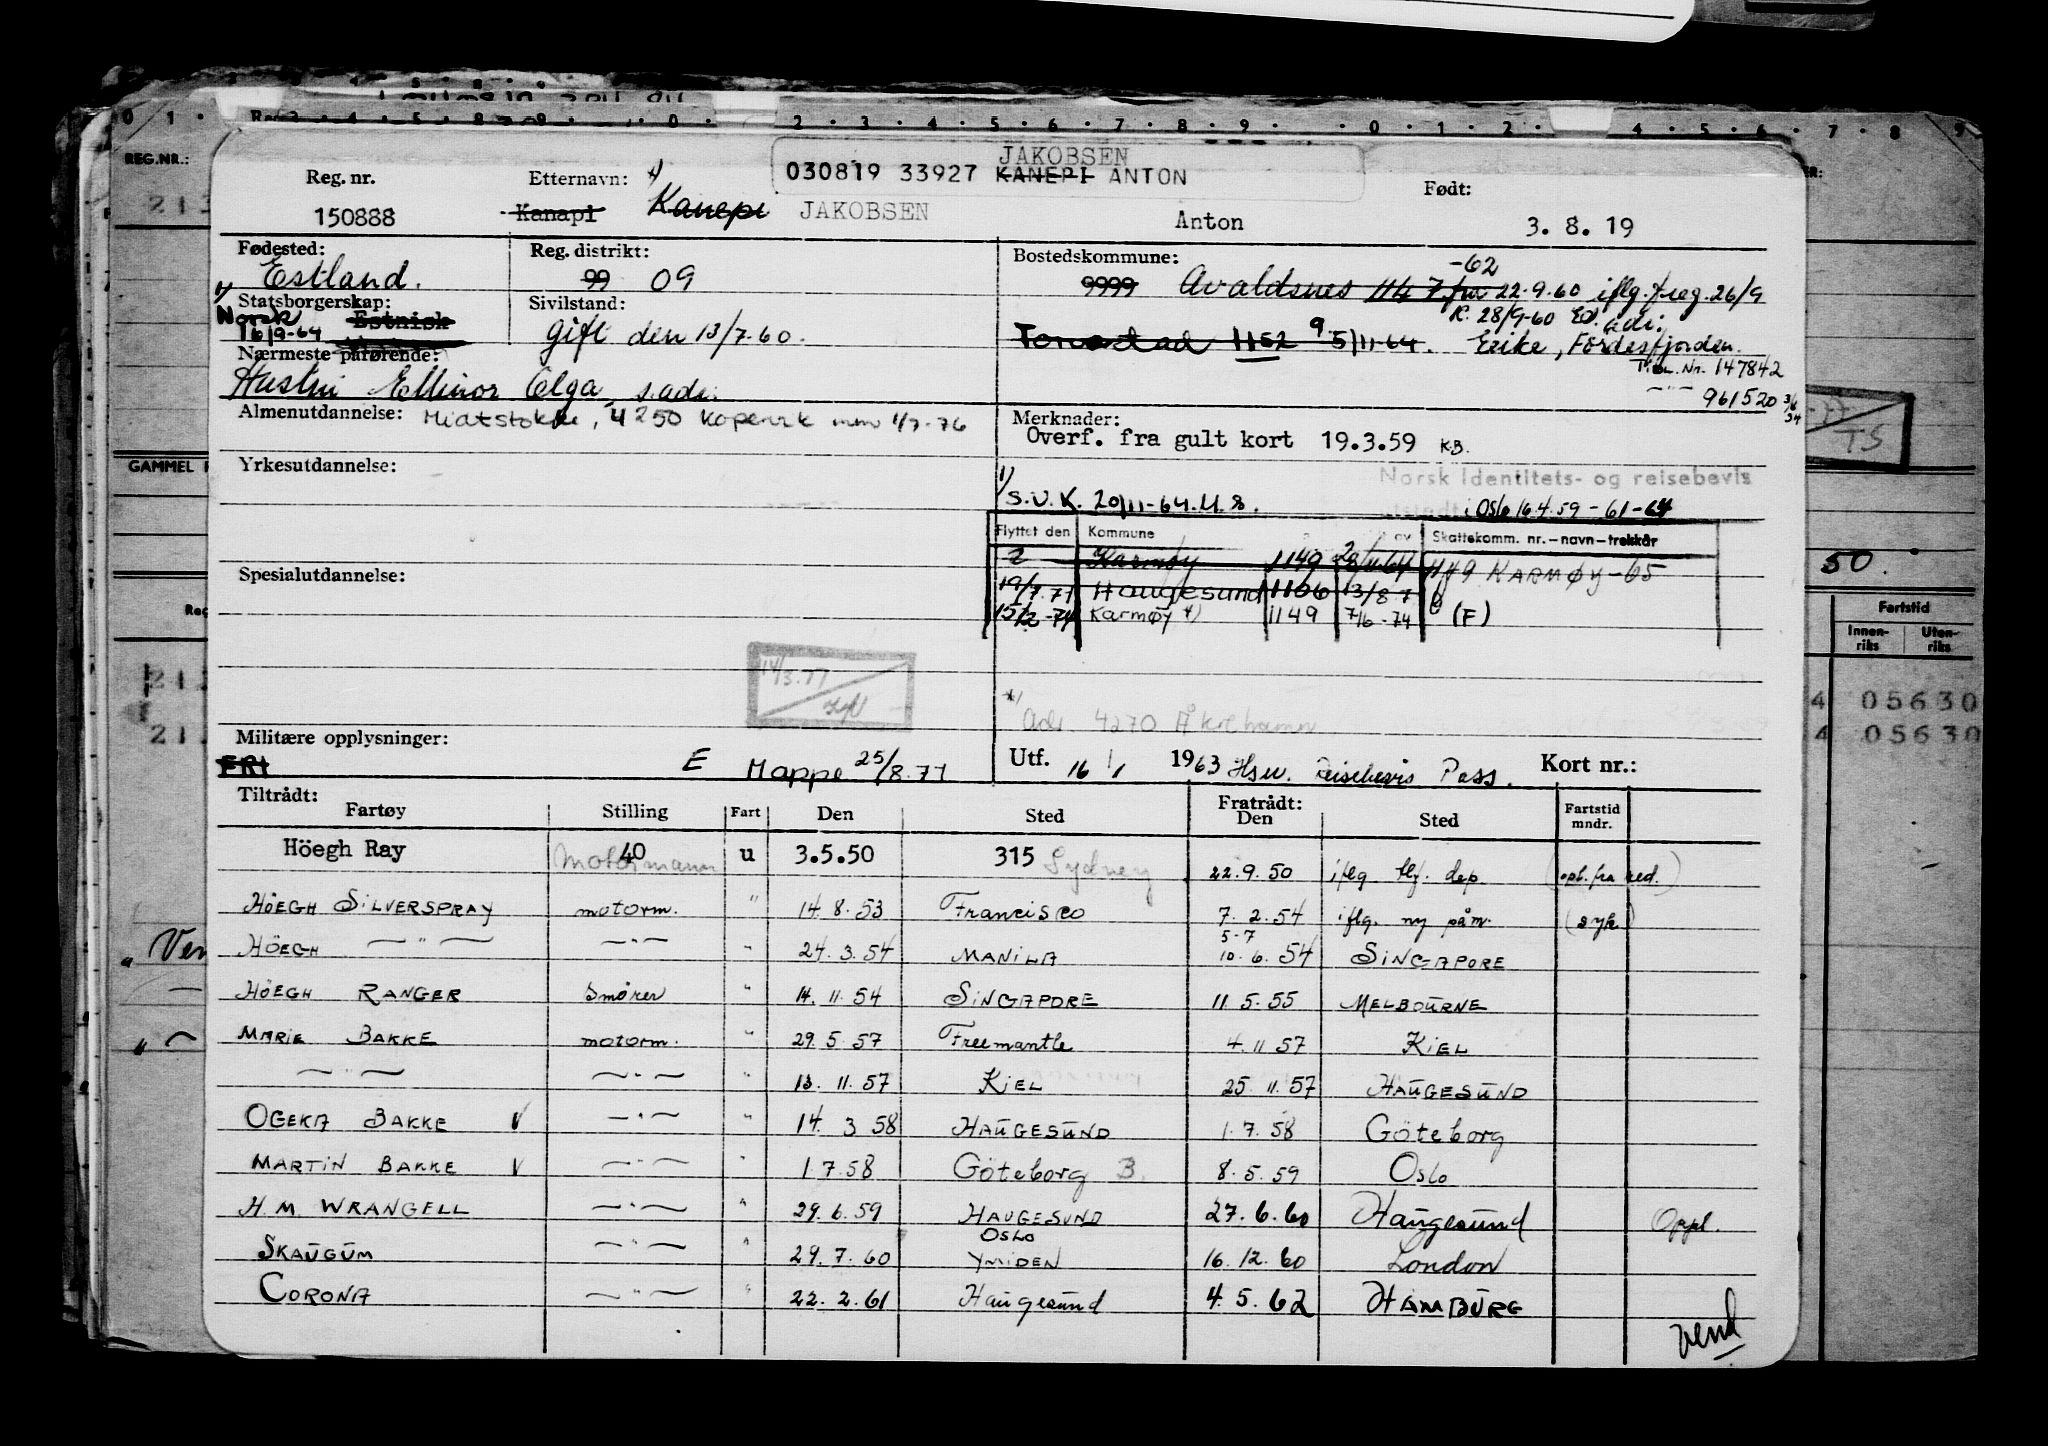 REG.NR.:
GAMMEL
Reg. nr.
150888
Etternavn:
Kanapi Kanepi JAKOBSEN
030819 33927 KANEPI ANTON
JAKOBSEN
Anton
Født:
3. 8. 19
Fødested:
Estland.
Reg. distrikt:
99 09
Bostedskommune:
-62
9999 Avaldsnes 1147 fra 22-9.60 iflg. freg. 26/9
K. 28/9-60
Statsborgerskap:
Norsk Estnisk
16/9-64
Sivilstand:
gift den 13/7-60.
Tornastad 1152 9 5/11-64. Eeike, Førdesfjorden.
Nærmeste pårørende:
Hustru Ellinor Olga, s.adr.
Nr. 147842
961520
Almenutdannelse: 4250 Kopervik 1/7-76
Merknader:
Overf. fra gult kort 19.3.59 KB.
Yrkesutdannelse:
Norsk Identitets- og reisebevis
utstedt i Oslo 16.4.59-61-64
1/ S.U.K. 20/11-64.
Flyttet den Kommune Skattekomm. nr.—navn—trekkår
2 Karmøy 1149 1149 KARMØY-65
19/7.71 Haugesund 1106 13/8.7
15/2-74 Karmøy *) 1149 7/6-74 (F)
Spesialutdannelse:
14/3.77
*) Adr. 4270 Åkrehamn
Militære opplysninger:
FRI E Mappe 25/8.77
Utf. 16/1 1963 Hsu. Reisebevis Pass. Kort nr.:
Tiltrådt:
Fartøy Stilling Fart Den Sted Fratrådt: Den Sted Fartstid mndr.
Höegh Ray 40 motormann u 3.5.50 315 Sydney 22.9.50 iflg. dep. (opl. fra red.)
HÖEGH SILVERSPRAY motorm. " 14.8.53 Francisco 7.2.54 iflg. ny påm. (syk)
5-7
HÖEGH —"— —"— " 24.3.54 MANILA 10.6.54 SINGAPORE
HÖEGH RANGER Smører " 14.11.54 SINGAPORE 11.5.55 MELBOURNE
MARIE BAKKE motorm. " 29.5.57 Freemantle 4.11.57 KIEL
—"— —"— " 13.11.57 KIEL 25.11.57 HAUGESUND
OGEKA BAKKE V —"— " 14.3.58 HAUGESUND 1.7.58 Göteborg
MARTIN BAKKE V —"— " 1.7.58 Göteborg B. 8.5.59 Oslo
H.M. WRANGELL —"— " 29.6.59 HAUGESUND 27.6.60 Haugesund Oppl.
OSLO
SKAUGUM —"— " 29.7.60 YMIDEN 16.12.60 London
CORONA —"— " 22.2.61 Haugesund 4.5.62 HAMBURG
vend
TS
50.
Fartstid
Innenriks Utenriks
4 05630
4 05630